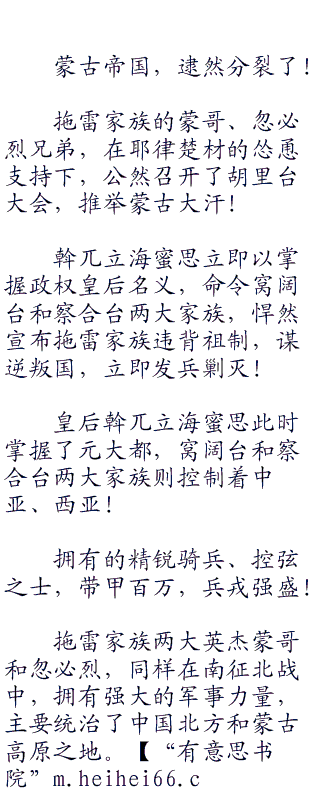 蒙古帝国，逮然分裂了！
拖雷家族的蒙哥、忽必
烈兄弟，在耶律楚材的怂恿
支持下，公然召开了胡里台
大会，推举蒙古大汗！
斡兀立海蜜思立即以掌
握政权皇后名义，命令窝阔
台和察合台两大家族，悍然
宣布拖雷家族违背祖制，谋
逆叛国，立即发兵剿灭！
皇后斡兀立海蜜思此时
掌握了元大都，窝阔台和察
合台两大家族则控制着中
亚、西亚！
拥有的精锐骑兵、控弦
之士，带甲百万，兵戎强盛！
拖雷家族两大英杰蒙哥
和忽必烈，同样在南征北战
中，拥有强大的军事力量，
主要统治了中国北方和蒙古
高原之地。【“有意思书
院”m.heihei66.c